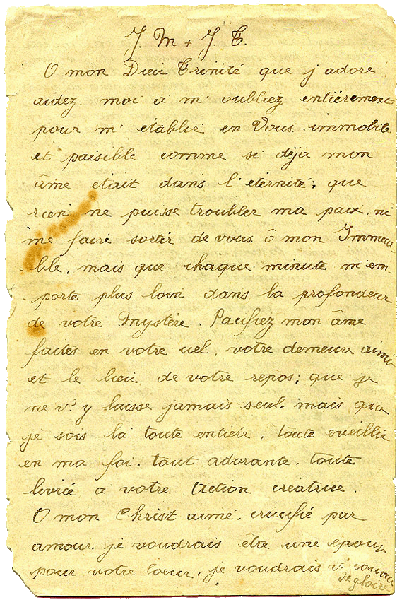 J. M + J. T.
O mon Dieu Trinité que j'adore
aidez moi à m'oublier entièrement
pour m'établir en Vous immobile
et paisible comme si déjà mon
âme était dans l'éternité; que
rien ne puisse troubler ma paix, ni
me faire sortir de vous ô mon Immua
ble, mais que chaque minute m'em
porte plus loin dans la profondeur
de votre Mystère. Pacifiez mon âme
faites en votre ciel, votre demeure aimée
et le lieu de votre repos; que je
ne vs y laisse jamais seul. mais que
je sois là toute entière, toute éveillée
en ma foi. tout adorante. toute
livrée à votre Action créatrice.
O mon Christ aimé crucifié par
amour, je voudrais être une épouse
pour votre Cœur, je voudrais vs couvrir
de gloire